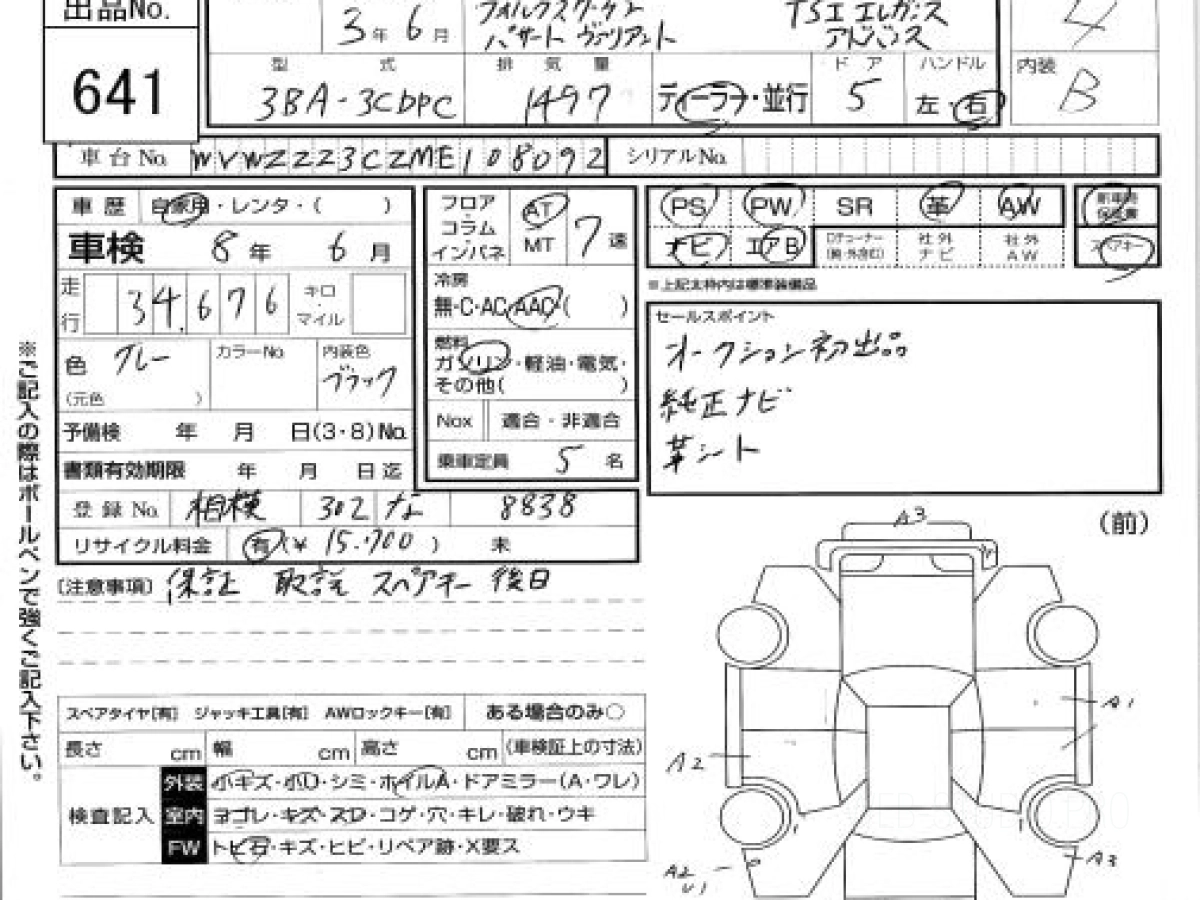 出品No.
641
3年 6月
フォルクスワーゲン
パサート ヴァリアント
TSI エレガンス
アドバンス
4
型式
3BA-3CDPC
排気量
1497
ディーラー・並行
ドア
5
ハンドル
左・右
内装
B
車台No. WVWZZZ3CZME108092
シリアルNo.
車歴 自家用・レンタ・( )
車検 8年 6月
走行 34,676 キロ・マイル
色 グレー
(元色 )
カラーNo.
内装色
ブラック
予備検 年 月 日(3・8)No.
書類有効期限 年 月 日迄
登録No. 相模 302 な 8838
リサイクル料金 有(¥ 15,700 ) 未
フロア・コラム・インパネ
AT
MT
7速
冷房
無・C・AC・AAC・( )
燃料
ガソリン・軽油・電気・
その他( )
Nox 適合・非適合
乗車定員 5 名
PS PW SR 革 AW
ナビ エアB
社外ナビ
社外AW
新車時保証書
スペアキー
※上記太枠内は標準装備品
セールスポイント
オークション初出品
純正ナビ
革シート
[注意事項] 保証 取説 スペアキー 後日
※ご記入の際はボールペンで強くご記入下さい。
(前)
A3
A1
A2
A2
U1
A3
スペアタイヤ[有] ジャッキ工具[有] AWロックキー[有] ある場合のみ○
長さ cm 幅 cm 高さ cm (車検証上の寸法)
検査記入
外装 小キズ・小凹・シミ・ホイルA・ドアミラー(A・ワレ)
室内 ヨゴレ・キズ・スレ・コゲ・穴・キレ・破れ・ウキ
FW トビ石・キズ・ヒビ・リペア跡・X要ス